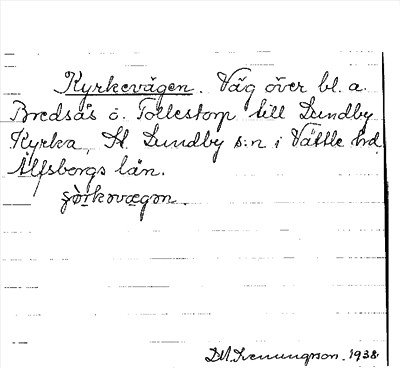 Kyrkevägen. Väg över bl. a.
Bredsås o. Tollestorp till Lundby
Kyrka, St. Lundby s:n i Vättle hd
Älfsborgs län.
1938